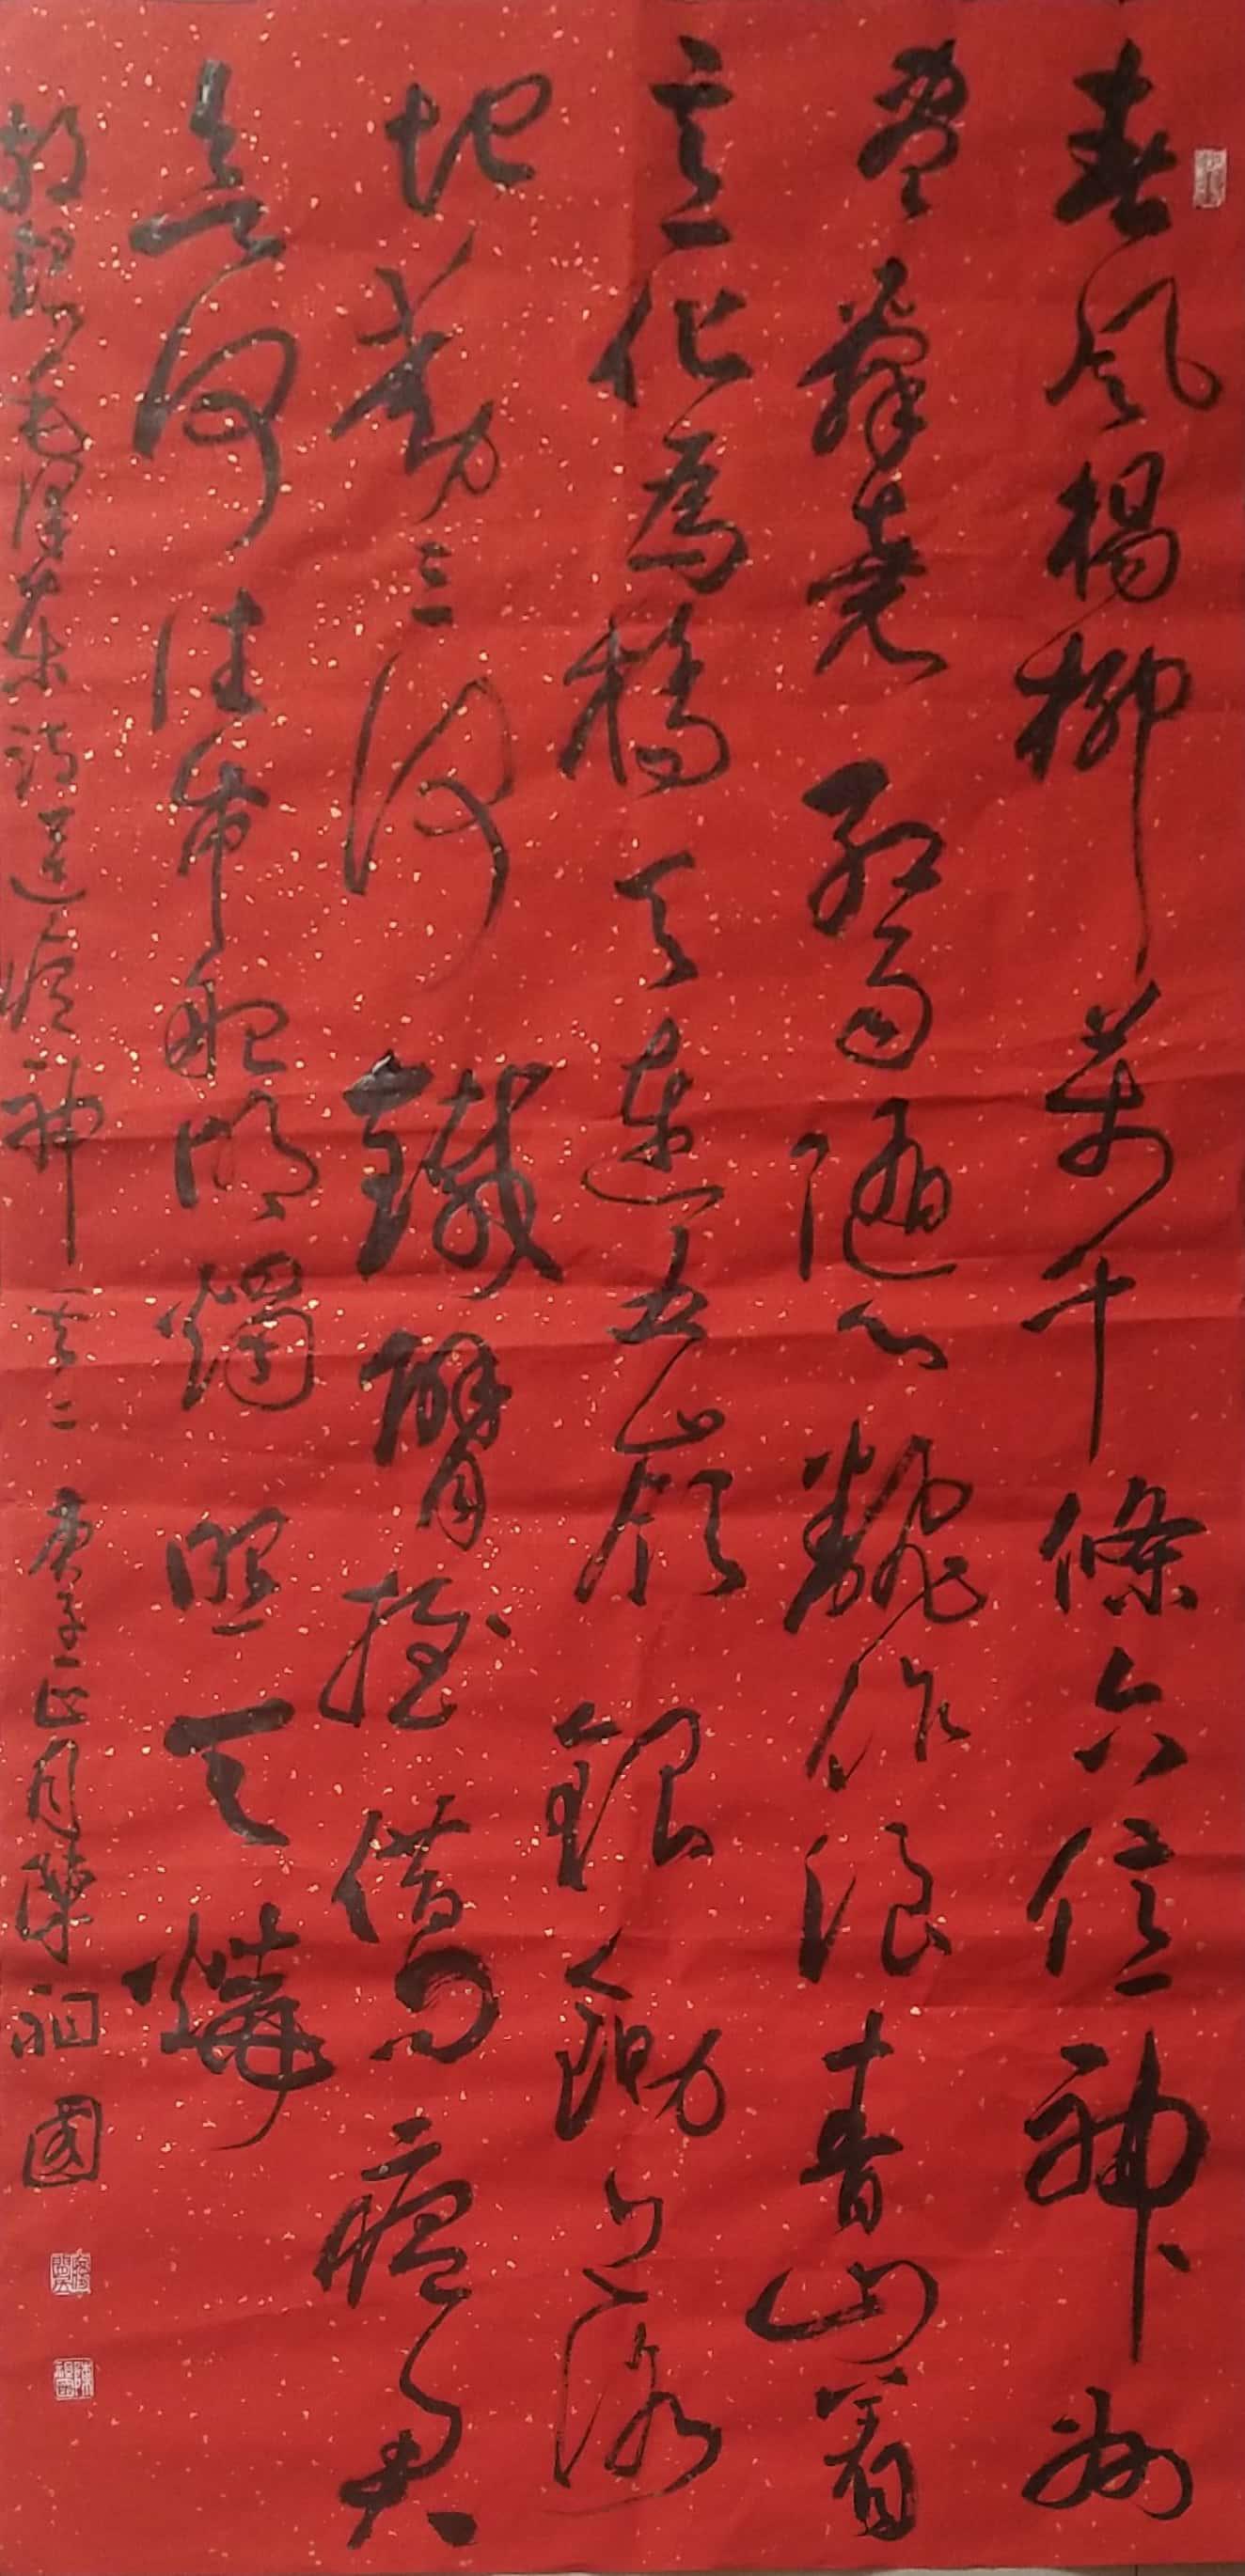 春風楊柳萬千條六億神州
盡舜堯紅雨隨心翻作浪青山着
意化為橋天連五嶺銀鋤落
地動三河鐵臂搖借問瘟君
何往帋船明燭照天燒
敬錄毛澤東詩送瘟神其二 庚子正月陳祖國